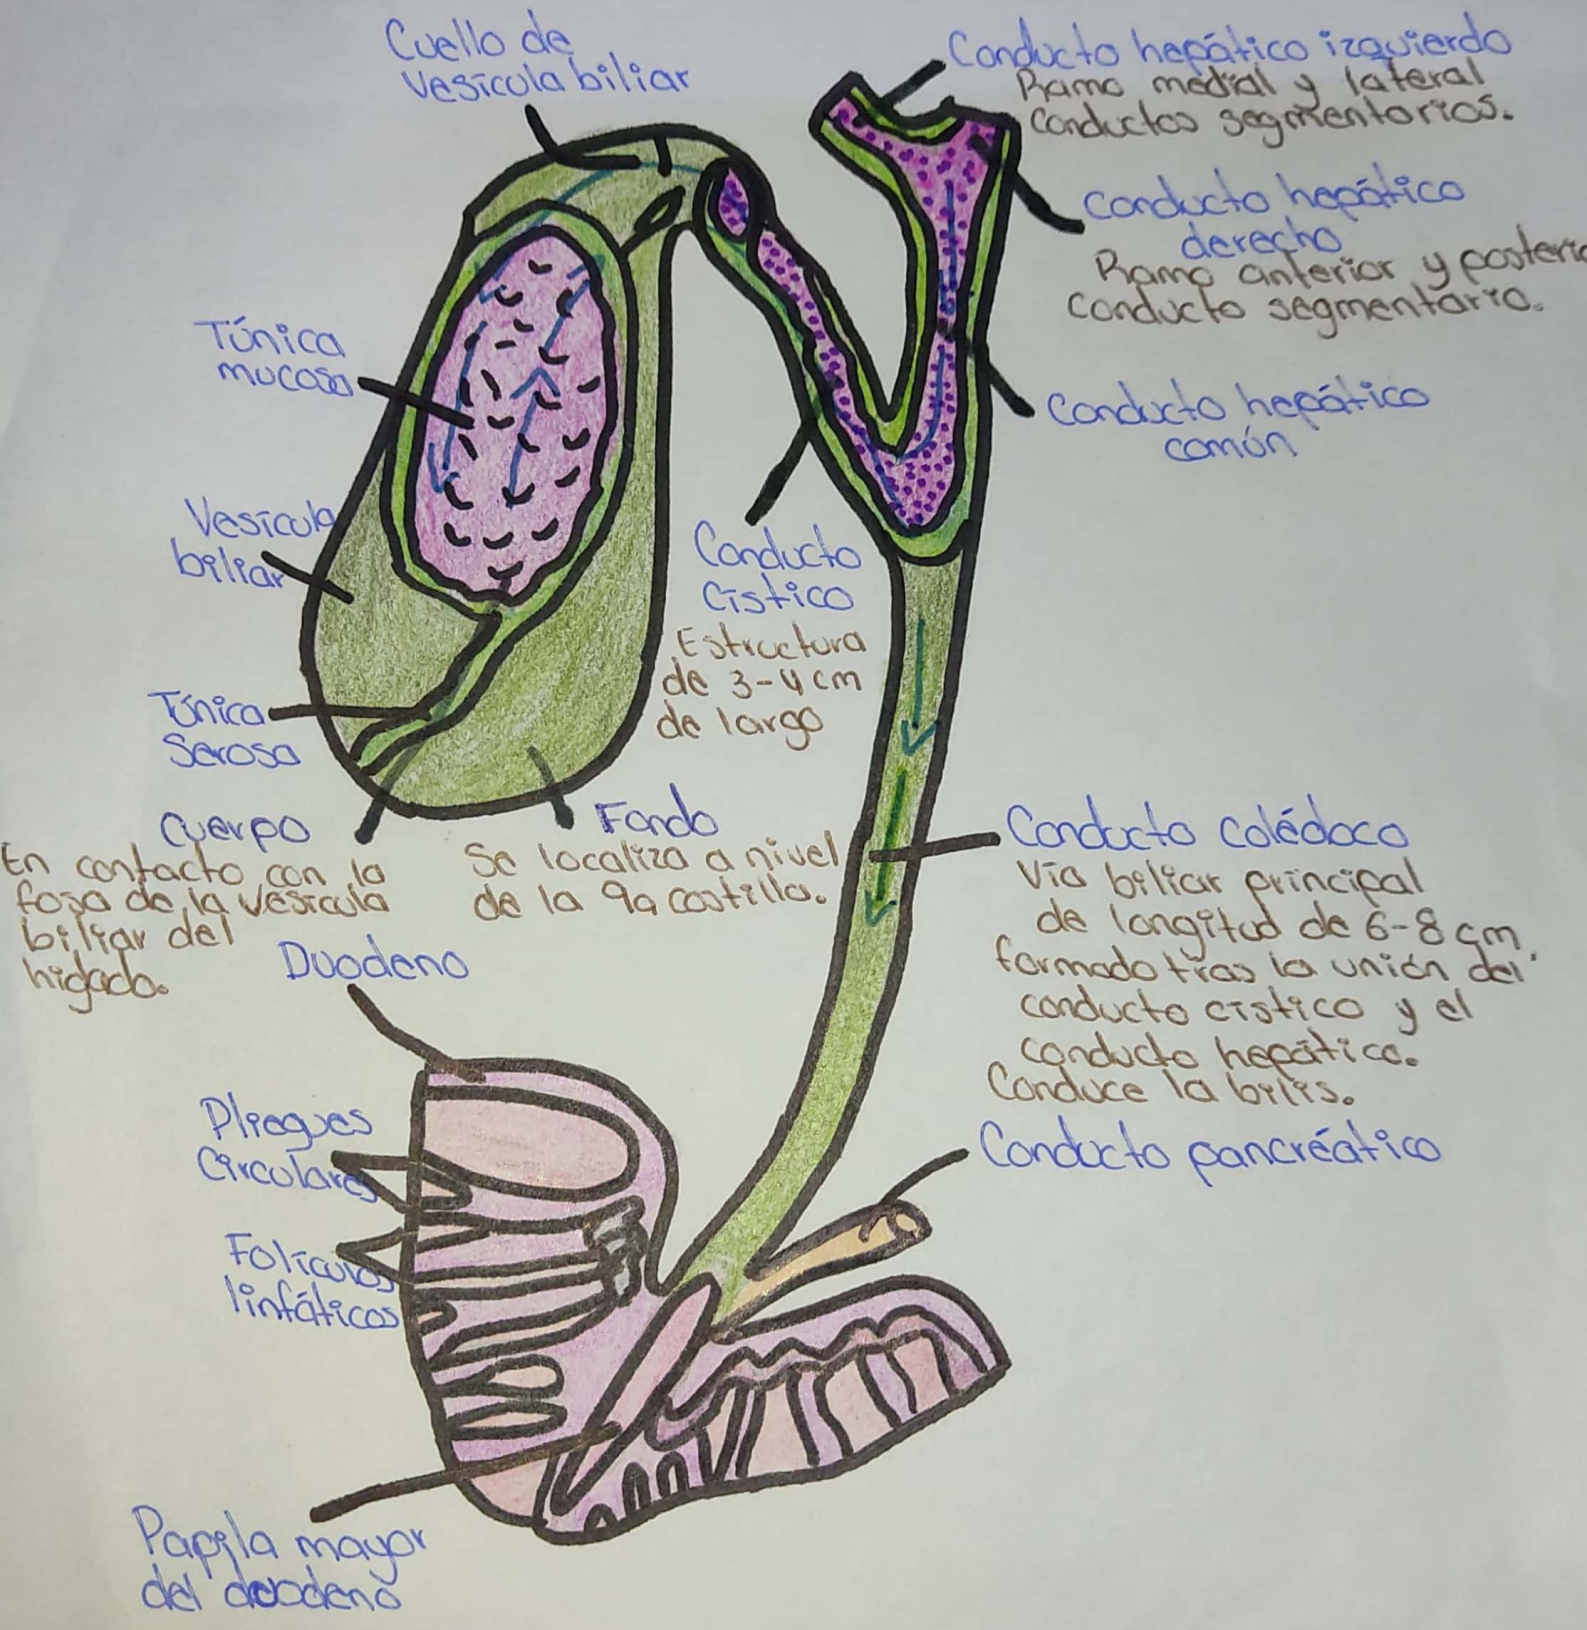 Cuello de
vesícula biliar
Conducto hepático izquierdo
Ramo medial y lateral
conductos segmentarios.
Conducto hepático
derecho
Ramo anterior y posterio
conducto segmentario.
Túnica
mucosa
Conducto hepático
común
Vesícula
biliar
Conducto
Cístico
Estructura
de 3-4 cm
de largo
Túnica
Serosa
Cuerpo
En contacto con la
fosa de la vesícula
biliar del
hígado.
Fondo
Se localiza a nivel
de la 9a costilla.
Conducto Colédoco
Vía biliar principal
de longitud de 6-8 cm
formado tras la unión del
conducto cístico y el
conducto hepático.
Conduce la bilis.
Duodeno
Pliegues
Circulares
Conducto pancréático
Folículos
linfáticos
Papila mayor
del duodeno